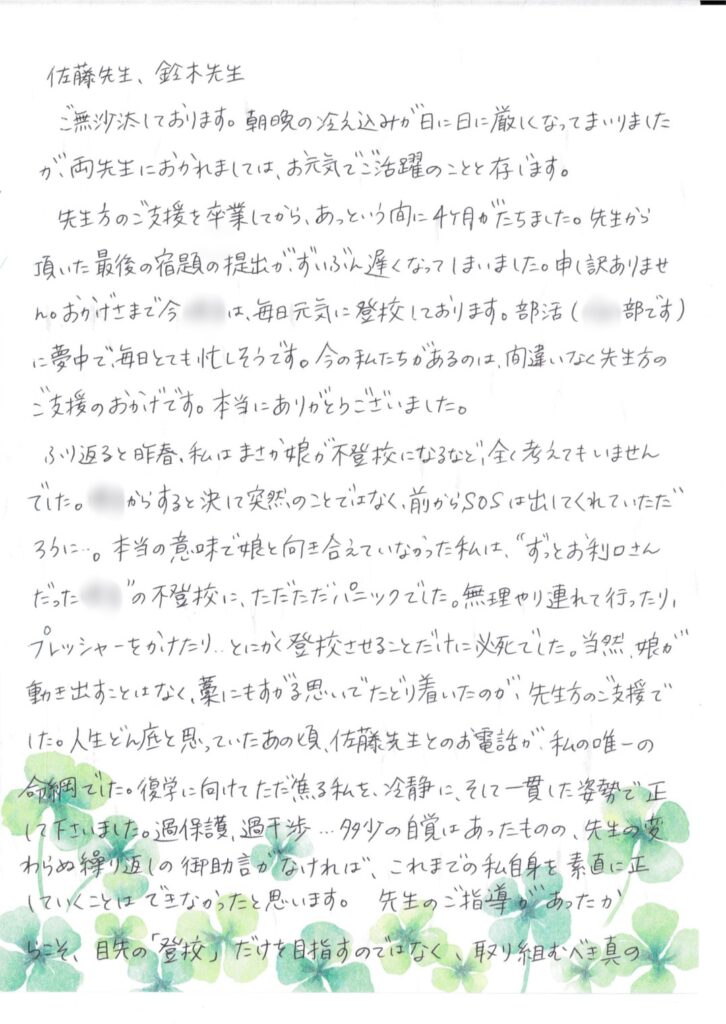 佐藤先生、鈴木先生
ご無沙汰しております。朝晩の冷え込みが日に日に厳しくなってまいりました
が、両先生におかれましては、お元気でご活躍のことと存じます。
先生方のご支援を卒業してから、あっという間に4ヶ月がたちました。先生から
頂いた最後の宿題の提出が、ずいぶん遅くなってしまいました。申し訳ありませ
ん。おかげさまで今 は、毎日元気に登校しております。部活( 部です)
に夢中で、毎日とても忙しそうです。今の私たちがあるのは、間違いなく先生方の
ご支援のおかげです。本当にありがとうございました。
ふり返ると昨春、私はまさか娘が不登校になるなど、全く考えてもいません
でした。 からすると決して突然のことではなく、前からSOSは出してくれていただ
ろうに…。本当の意味で娘と向き合えていなかった私は、"ずっとお利口さん
だった "の不登校に、ただただパニックでした。無理やり連れて行ったり、
プレッシャーをかけたり…とにかく登校させることだけに必死でした。当然、娘が
動き出すことはなく、藁にもすがる思いでたどり着いたのが、先生方のご支援で
した。人生どん底と思っていたあの頃、佐藤先生とのお電話が、私の唯一の
命綱でした。復学に向けてただ焦る私を、冷静に、そして一貫した姿勢で正
して下さいました。過保護、過干渉…多少の自覚はあったものの、先生の変
わらぬ繰り返しの御助言がなければ、これまでの私自身を素直に正
していくことはできなかったと思います。 先生のご指導があったか
らこそ、目先の「登校」だけを目指すのではなく、取り組むべき真の